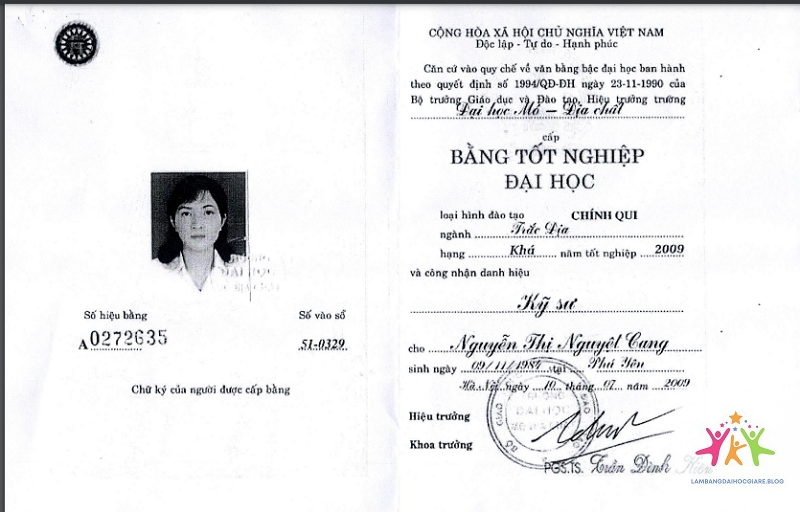 Số hiệu bằng
A 0272635
Số vào sổ
51-0329
Chữ ký của người được cấp bằng
CỘNG HÒA XÃ HỘI CHỦ NGHĨA VIỆT NAM
Độc lập - Tự do - Hạnh phúc
Căn cứ vào quy chế về văn bằng bậc đại học ban hành
theo quyết định số 1994/QĐ-ĐH ngày 23-11-1990 của
Bộ trưởng Giáo dục và Đào tạo, Hiệu trưởng trường
Đại học Mỏ – Địa chất
cấp
BẰNG TỐT NGHIỆP
ĐẠI HỌC
loại hình đào tạo CHÍNH QUI
ngành Trắc Địa
hạng Khá năm tốt nghiệp 2009
và công nhận danh hiệu
Kỹ sư
cho Nguyễn Thị Nguyệt Cang
sinh ngày 09/11/1984 tại Phú Yên
Hà Nội ngày 10 tháng 07 năm 2009
Hiệu trưởng
Khoa trưởng
PGS.TS. Trần Đình
LAMBANGDAIHOCGIARE.BLOG